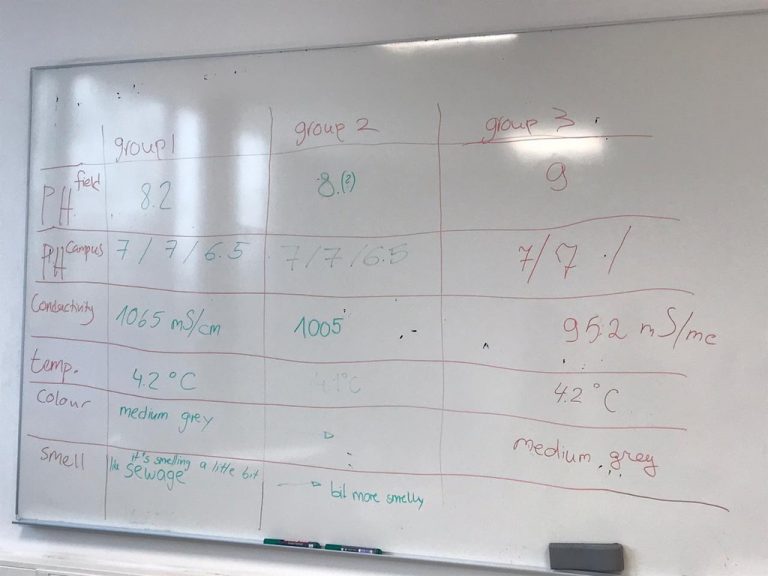 group 1 group 2 group 3
PH field 8.2 8.(?) 9
PH Campus 7/7/6.5 7/7/6.5 7/7 /
Conductivity 1065 mS/cm 1005 95.2 mS/mc
temp. 4.2°C 4.1°C 4.2°C
Colour medium grey
medium grey
smell it's smelling a little bit
like sewage
bit more smelly